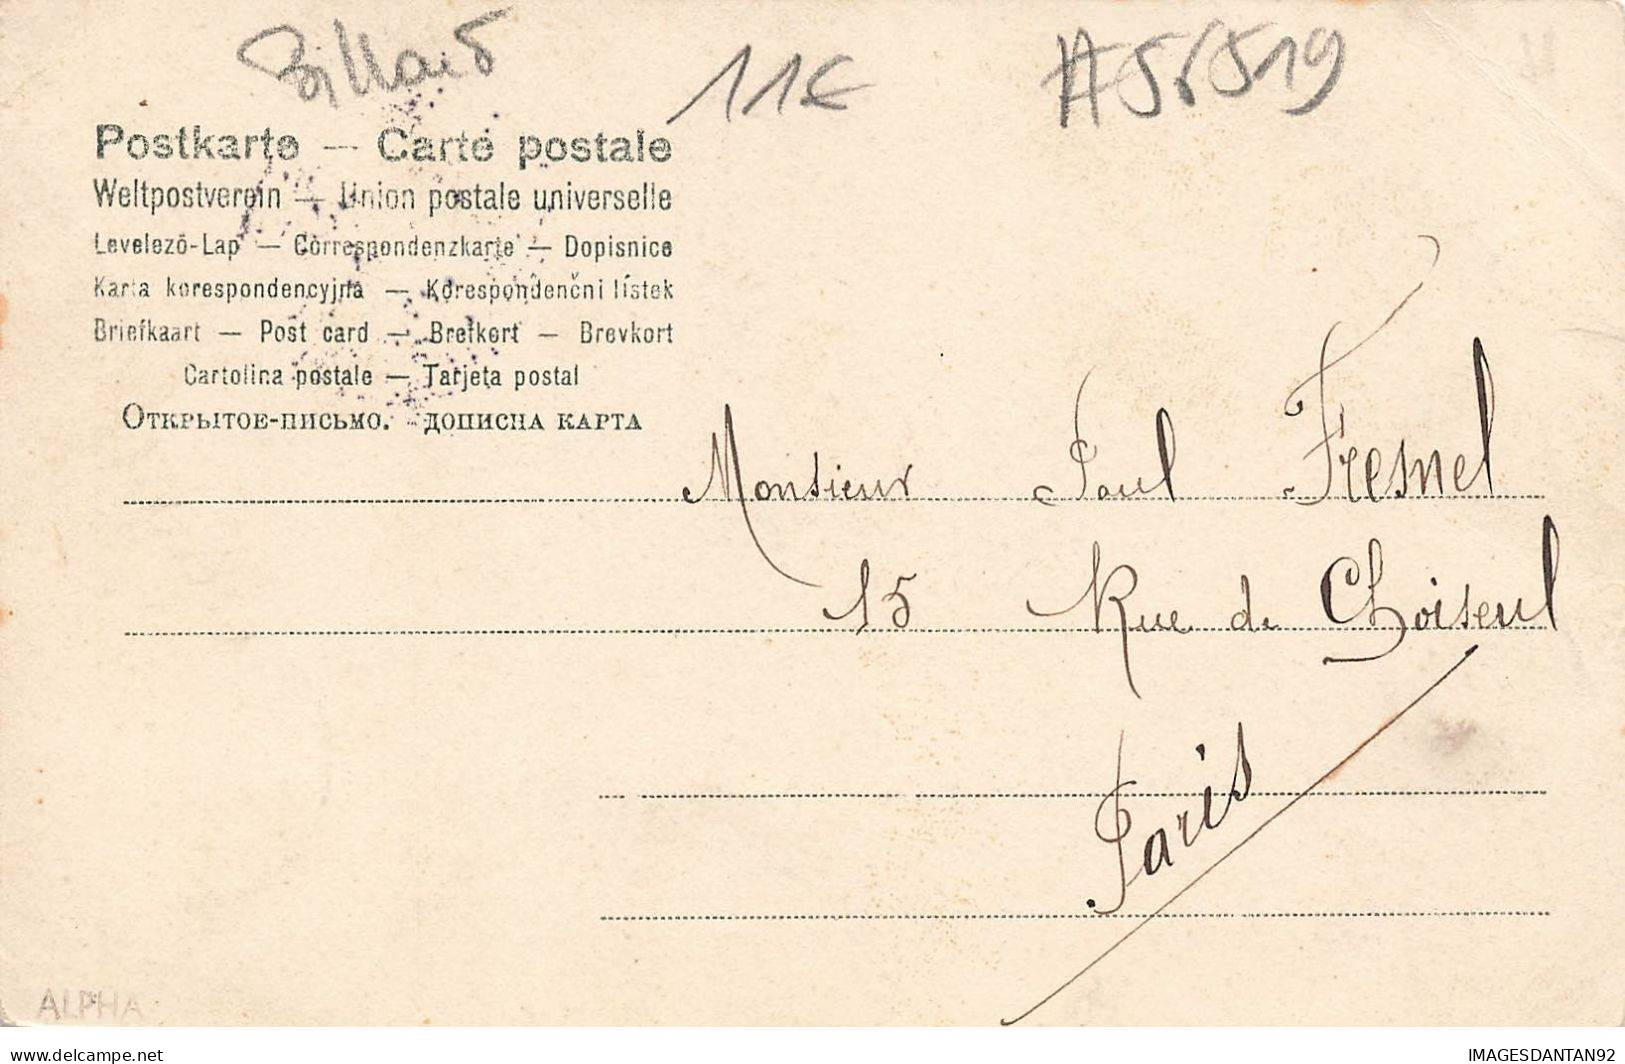 Billard 11€ #56519
Postkarte — Carte postale
Weltpostverein — Union postale universelle
Levelező-Lap — Correspondenzkarte — Dopisnice
Karta korespondencyjna — Korespondenční lístek
Briefkaart — Post card — Brefkort — Brevkort
Cartolina postale — Tarjeta postal
Открытое-письмо. дописна карта
Monsieur Paul Fresnel
15 Rue de Choiseul
Paris
ALPHA
delcampe.net IMAGESDANTAN92